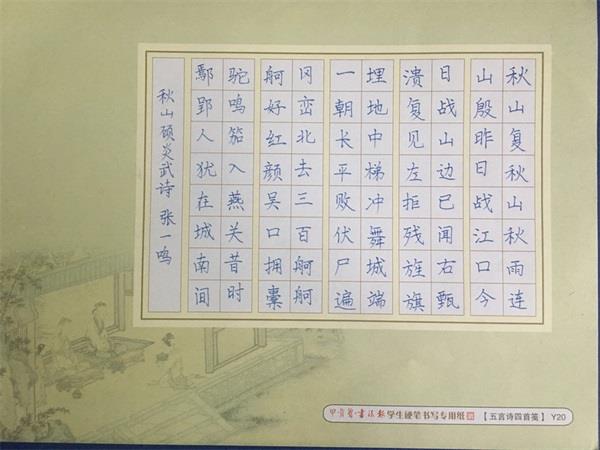 秋山复秋山秋雨连
山殷昨日战江口今
日战山边已闻右甄
溃复见左拒残旌旗
埋地中梯冲舞城端
一朝长平败伏尸遍
冈峦北去三百舸舸
舸好红颜吴口拥橐
驼鸣笳入燕关昔时
鄢郢人犹在城南间
秋山硕炎武诗 张一鸣
书法报学生硬笔书写专用纸 【五言诗四首笺】 Y20